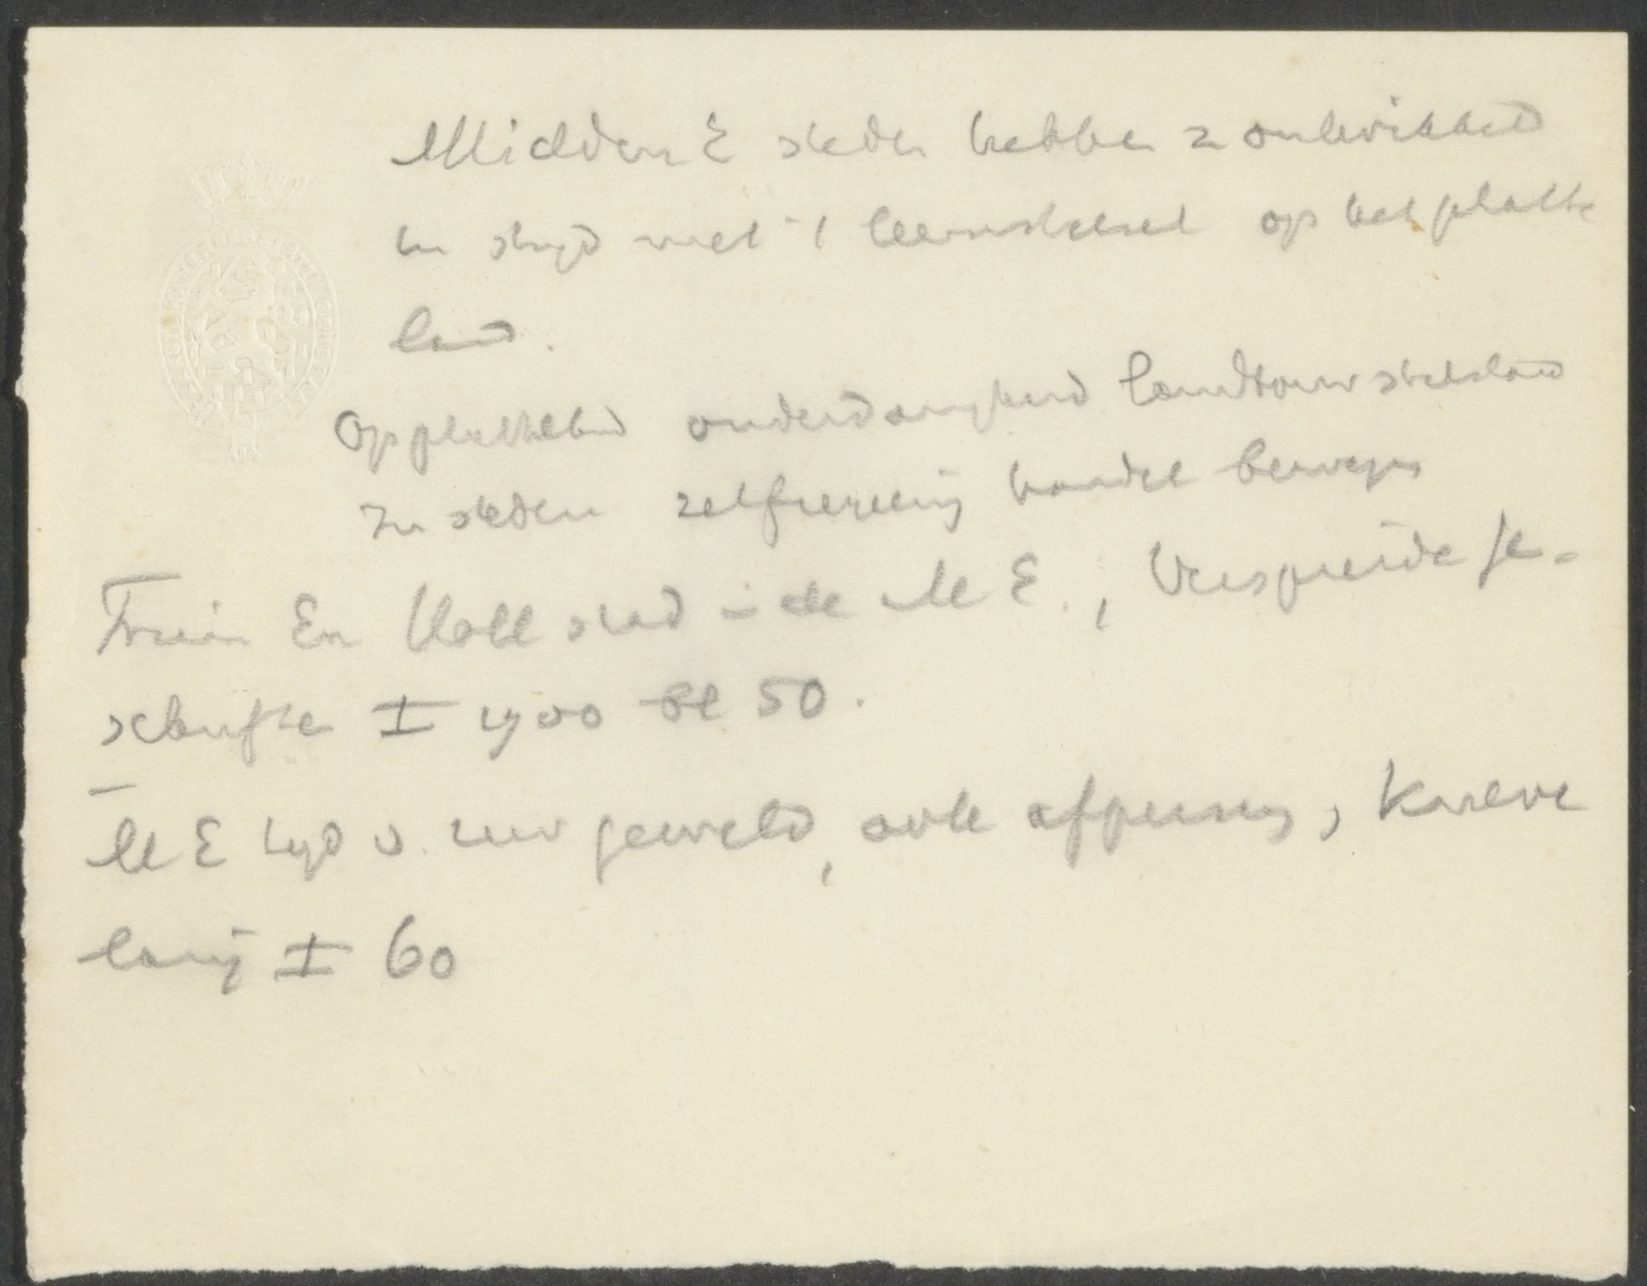 Midden E steden hebben z ontwikkeld
in strijd met 't leenstelsel op het platte
land.
Op platteland onderdanigheid landbouw stilstand
In steden zelfregeering handel beweging
Fruin Een Holl stad in de M E., Verspreide ge-
schriften I 1900 bl 50.
M E tijd v. ruw geweld, ook afpersing,
I 60